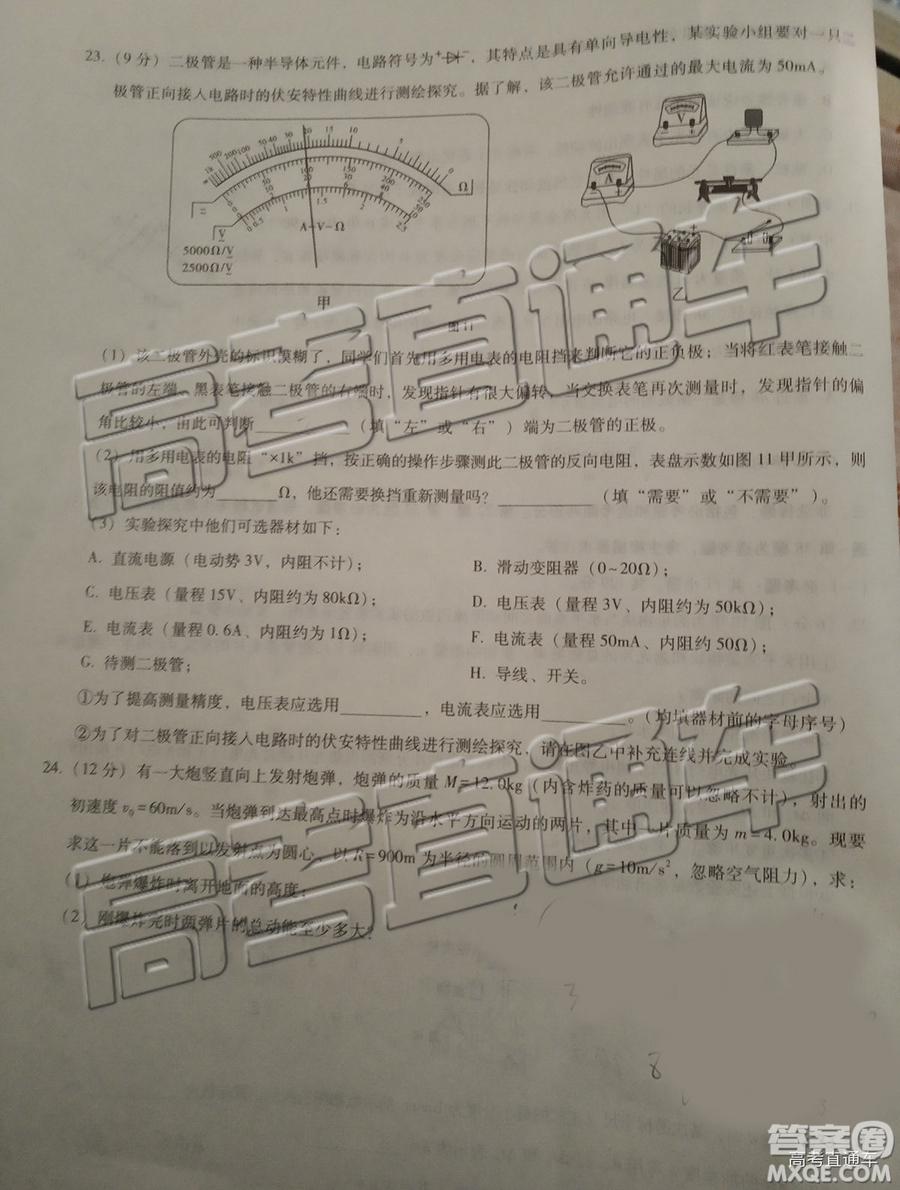 23.（9分）二极管是一种半导体元件，电路符号为 ，其特点是具有单向导电性，某实验小组要对一只
极管正向接入电路时的伏安特性曲线进行测绘探究。据了解，该二极管允许通过的最大电流为50mA。
1k 500 200 100 50 40 30 20 15 10 5 0 Ω
0 50 100 150 200 250
0 10 20 30 40 50
0 0.5 1 1.5 2 2.5
A-V-Ω
V
5000Ω/V
2500Ω/V
V
A
甲
乙
图11
（1）该二极管外壳的标识模糊了，同学们首先用多用电表的电阻挡来判断它的正负极；当将红表笔接触二
极管的左端、黑表笔接触二极管的右端时，发现指针有很大偏转，当交换表笔再次测量时，发现指针的偏
角比较小，由此可判断________（填“左”或“右”）端为二极管的正极。
（2）用多用电表的电阻“×1k”挡，按正确的操作步骤测此二极管的反向电阻，表盘示数如图11甲所示，则
该电阻的阻值约为________Ω，他还需要换挡重新测量吗？________（填“需要”或“不需要”）。
（3）实验探究中他们可选器材如下：
A. 直流电源（电动势3V，内阻不计）；
B. 滑动变阻器（0~20Ω）；
C. 电压表（量程15V、内阻约为80kΩ）；
D. 电压表（量程3V、内阻约为50kΩ）；
E. 电流表（量程0.6A、内阻约为1Ω）；
F. 电流表（量程50mA、内阻约50Ω）；
G. 待测二极管；
H. 导线、开关。
①为了提高测量精度，电压表应选用________，电流表应选用________。（均填器材前的字母序号）
②为了对二极管正向接入电路时的伏安特性曲线进行测绘探究，请在图乙中补充连线并完成实验。
24.（12分）有一大炮竖直向上发射炮弹，炮弹的质量M=12.0kg（内含炸药的质量可以忽略不计），射出的
初速度v₀=60m/s。当炮弹到达最高点时爆炸为沿水平方向运动的两片，其中一片质量为m=4.0kg。现要
求这一片不能落到以发射点为圆心、以R=900m为半径的圆周范围内（g=10m/s²，忽略空气阻力），求：
（1）炮弹爆炸时离开地面的高度；
（2）刚爆炸完时两弹片的总动能至少多大？
3
8
3
高考直通车
高考直通车
答案卷
高考直通车
MXQE.COM